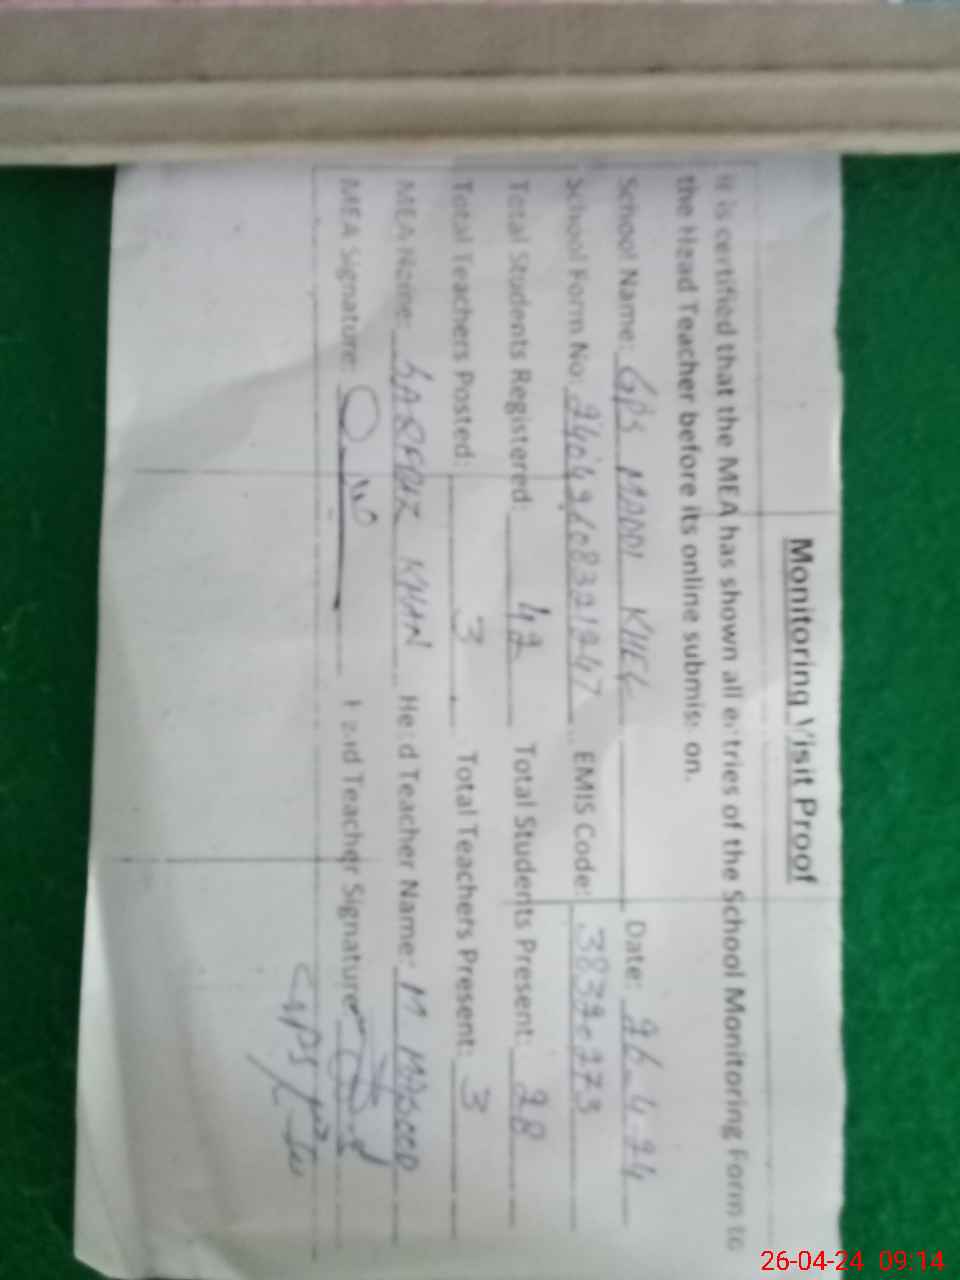 Monitoring Visit Proof
It is certified that the MEA has shown all entries of the School Monitoring Form to
the Head Teacher before its online submission.
School Name: GPS MADDI KHEL Date: 26-4-24
School Form No: EMIS Code:
Total Students Registered: 42 Total Students Present: 28
Total Teachers Posted: 3 Total Teachers Present: 3
MEA Name: SARFARAZ KHAN Head Teacher Name: M MASOOD
MEA Signature: Head Teacher Signature
GPS
26-04-24 09:14